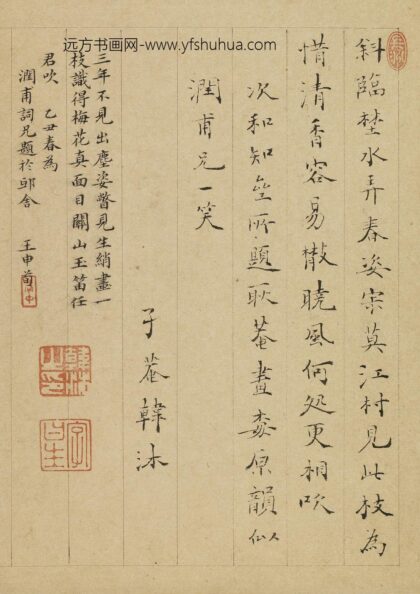 远方书画网-www.yfshuhua.com
斜臨埜水弄春姿宗莫江村見此枝為
惜清香容易散曉風何处更相吹
次和知㙓所題耿菴畫森原韻似
潤甫兄一笑
子菴韓沐
三年不見出塵姿瞥見生綃畫一
枝識得梅花真面目關山玉笛任
君吹 乙丑春為
潤甫詞兄題於邸舍 王申荀